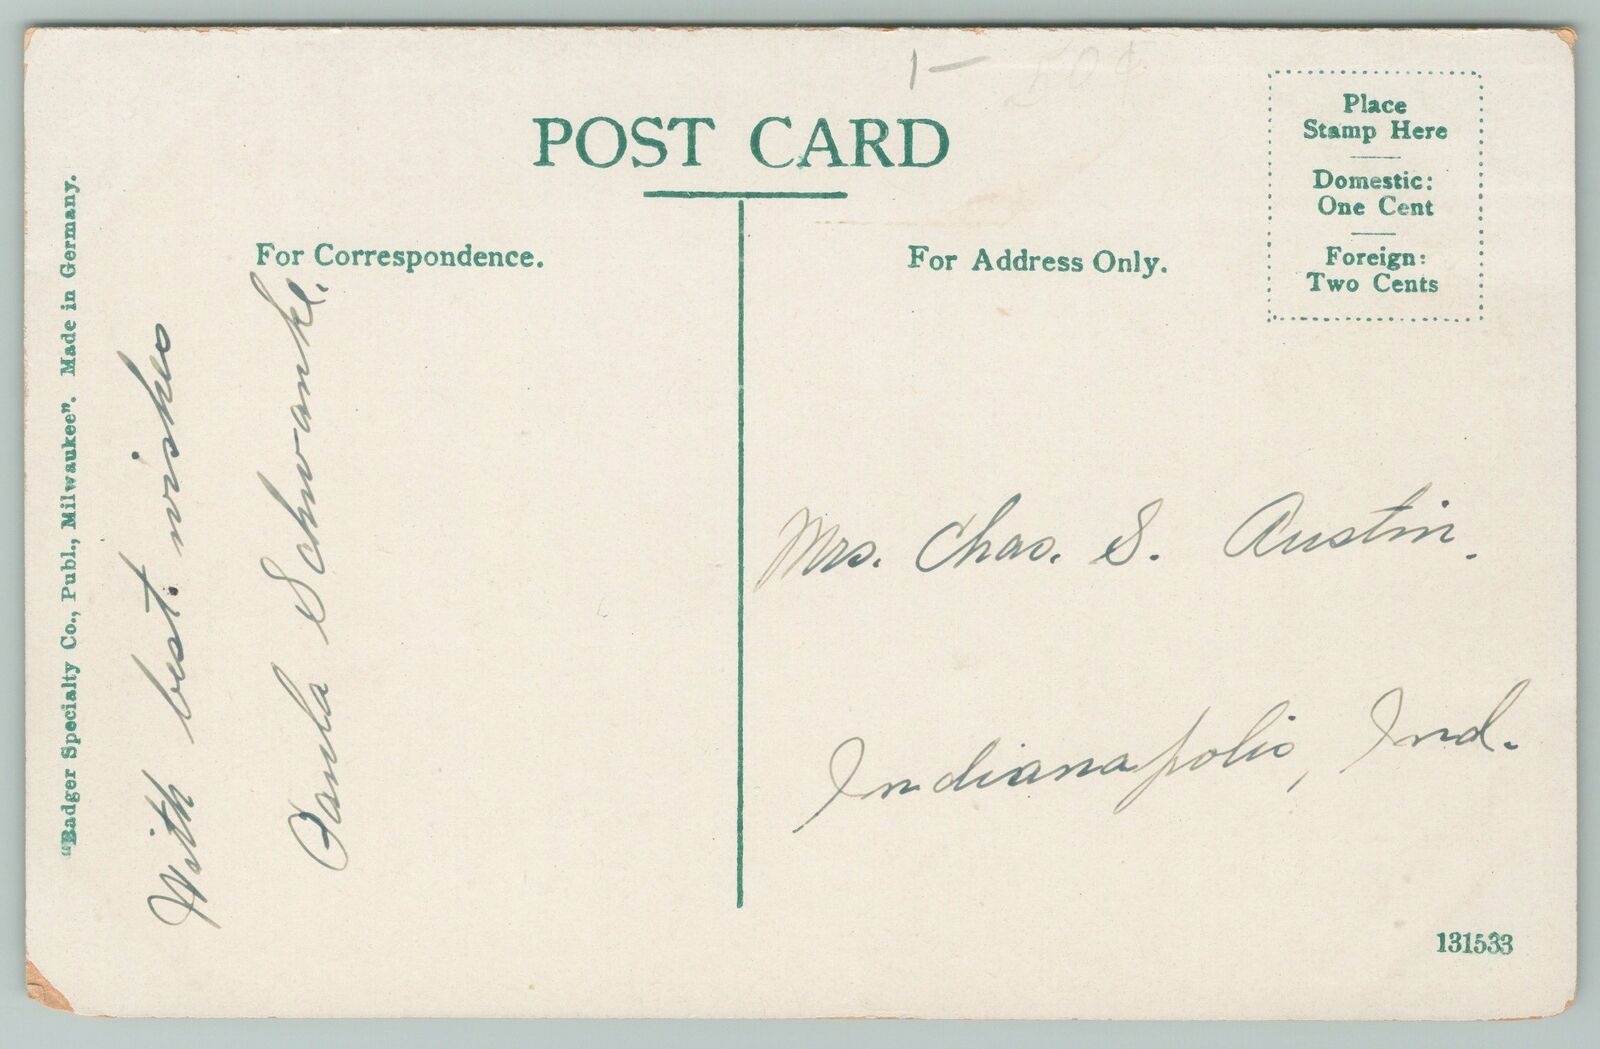 1- 50¢
POST CARD
Place
Stamp Here
Domestic:
One Cent
Foreign:
Two Cents
For Correspondence.
For Address Only.
"Badger Specialty Co., Publ., Milwaukee". Made in Germany.
With best wishes
Paula Schwanke.
Mrs. Chas. S. Austin.
Indianapolis, Ind.
131533